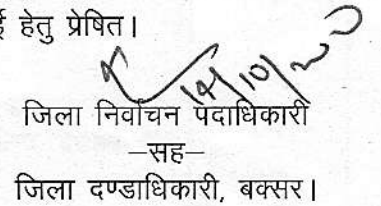 हेतु प्रेषित।
14/10/20
जिला निर्वाचन पदाधिकारी
–सह–
जिला दण्डाधिकारी, बक्सर।